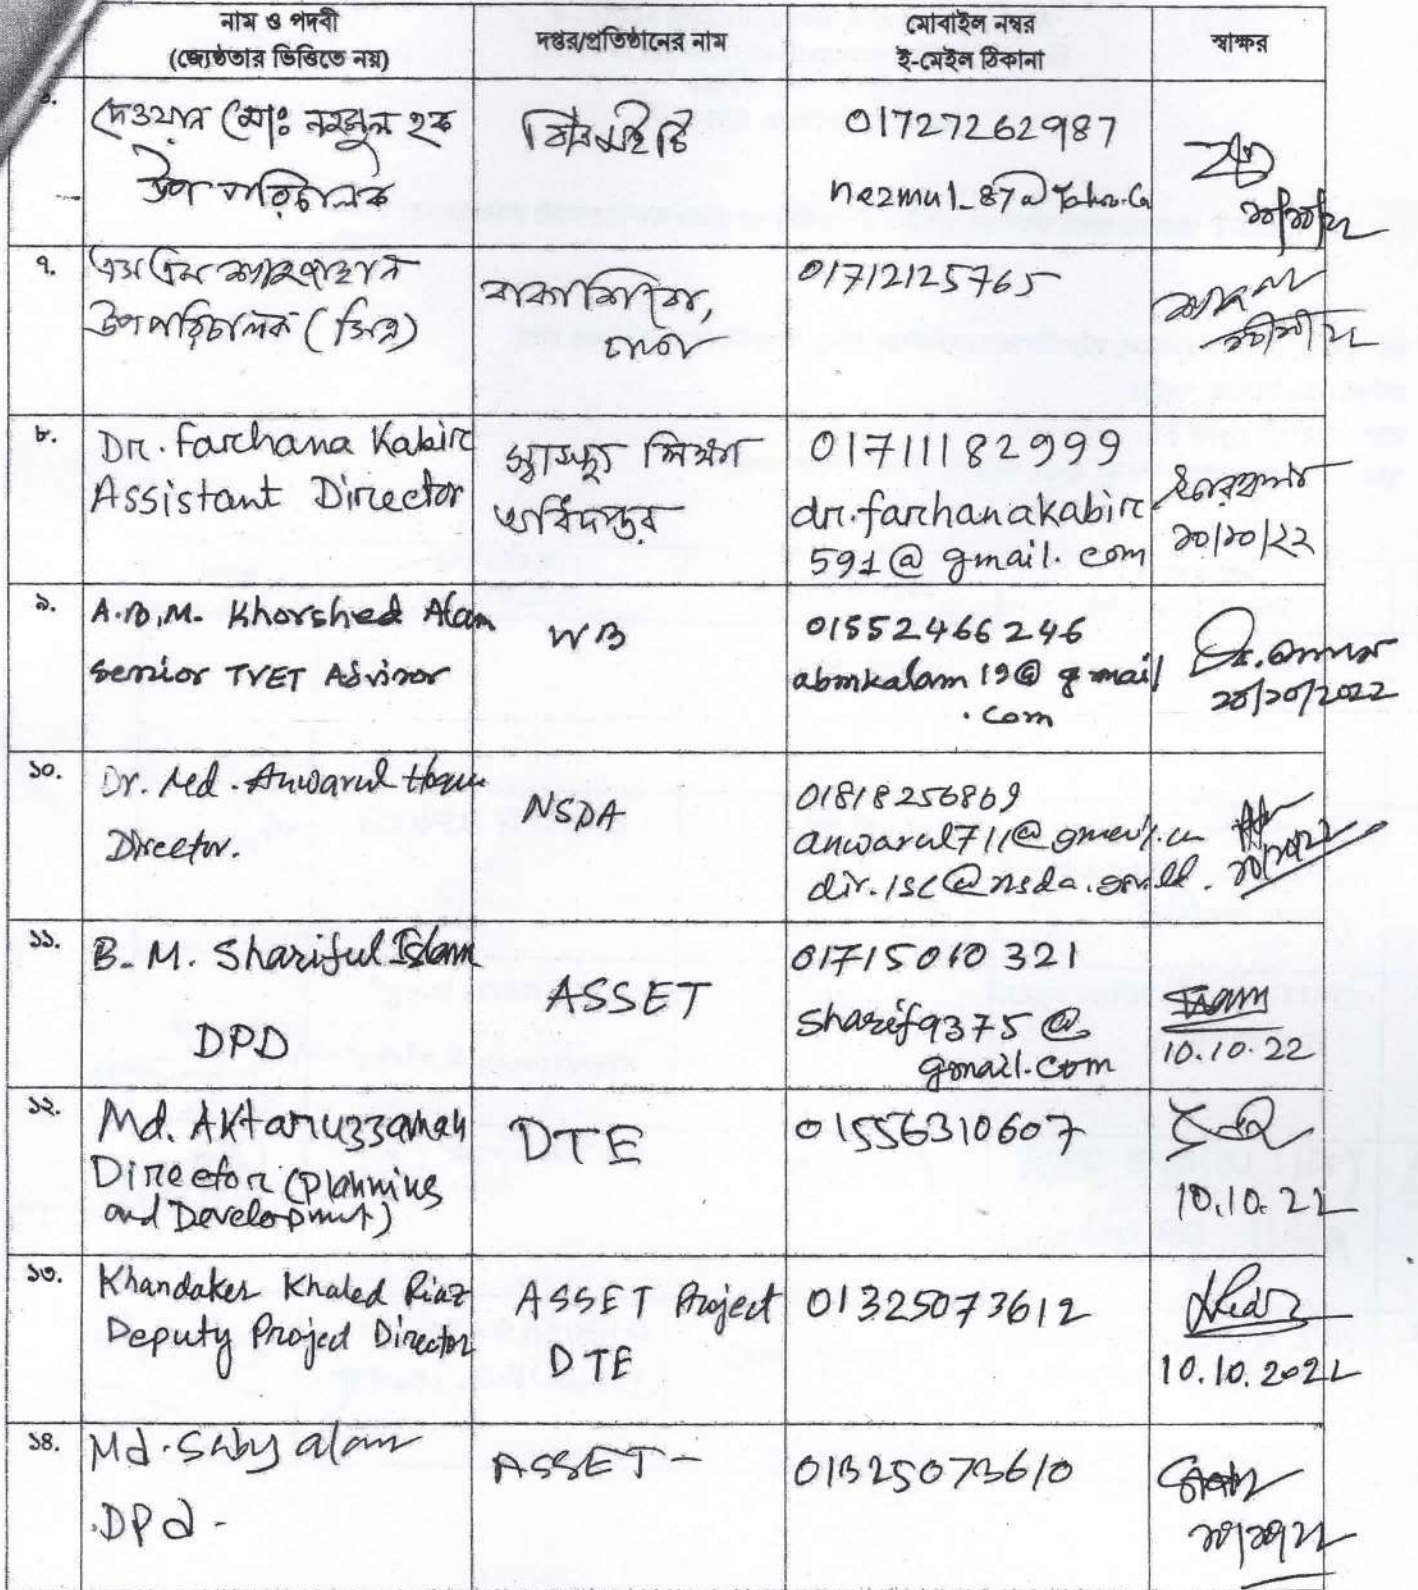 নাম ও পদবী
(জ্যেষ্ঠতার ভিত্তিতে নয়)
দপ্তর/প্রতিষ্ঠানের নাম
মোবাইল নম্বর
ই-মেইল ঠিকানা
স্বাক্ষর
দেওয়ান মোঃ নজমুল হক
উপ পরিচালক
01727262987
nezmul_87@
১০/১০/২২
৭.
এস এম শাহজাহান
উপপরিচালক (সিঃ)
বাকাশিবো,
ঢাকা
01712125765
৮.
Dr. Farhana Kabir
Assistant Director
স্বাস্থ্য শিক্ষা
অধিদপ্তর
01711182999
dr.farhanakabir
591@gmail.com
১০/১০/২২
৯.
A.B.M. Khorshed Alam
Senior TVET Advisor
WB
01552466246
abmkalam19@gmail
.com
১০/১০/2022
১০.
Dr. Md. Anwarul Hoque
Director.
NSDA
01818256869
anwarul711@
১১.
B.M. Shariful Islam
DPD
ASSET
01715010321
Sharif9375@
gmail.com
10.10.22
১২.
Md. Aktaruzzaman
Director (Planning
and Development)
DTE
01556310607
10.10.22
১৩.
Khandaker Khaled Riaz
Deputy Project Director
ASSET Project
DTE
01325073612
10.10.2022
১৪.
Md. alam
DPd -
ASSET -
01325073610